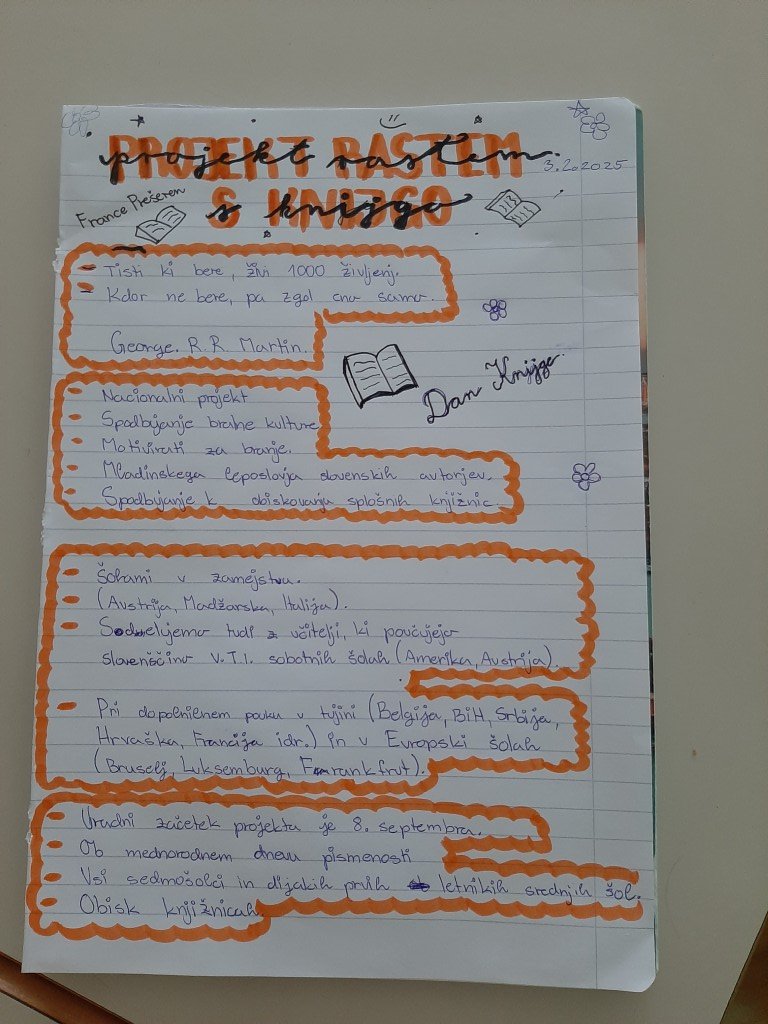 PROJEKT RASTEM
projekt rastem
3.2.2025
S KNJIGO
s knjigo
France Prešeren
- Tisti ki bere, živi 1000 življenj.
- Kdor ne bere, pa zgol eno samo.
George. R.R. Martin.
Dan Knjige.
- Nacionalni projekt
- Spodbujanje bralne kulture
- Motivirati za branje.
- Mladinskega leposlovja slovenskih avtorjev.
- Spodbujanje k obiskovanju splošnih knjižnic.
- Šolami v zamejstvu.
- (Avstrija, Madžarska, Italija).
- Sodelujemo tudi z učitelji, ki poučujejo
slovenščino v.T.I. sobotnih šolah (Amerika, Avstrija).
- Pri dopolnilnem pouku v tujini (Belgija, BiH, Srbija,
Hrvaška, Francija idr.) in v Evropski šolah
(Bruselj, Luksemburg, Frankfrut).
- Uradni začetek projekta je 8. septembra.
- Ob mednorodnem dnevu pismenosti
- Vsi sedmošolci in dijakih prvih letnikih srednjih šol.
- Obisk knjižnicah.